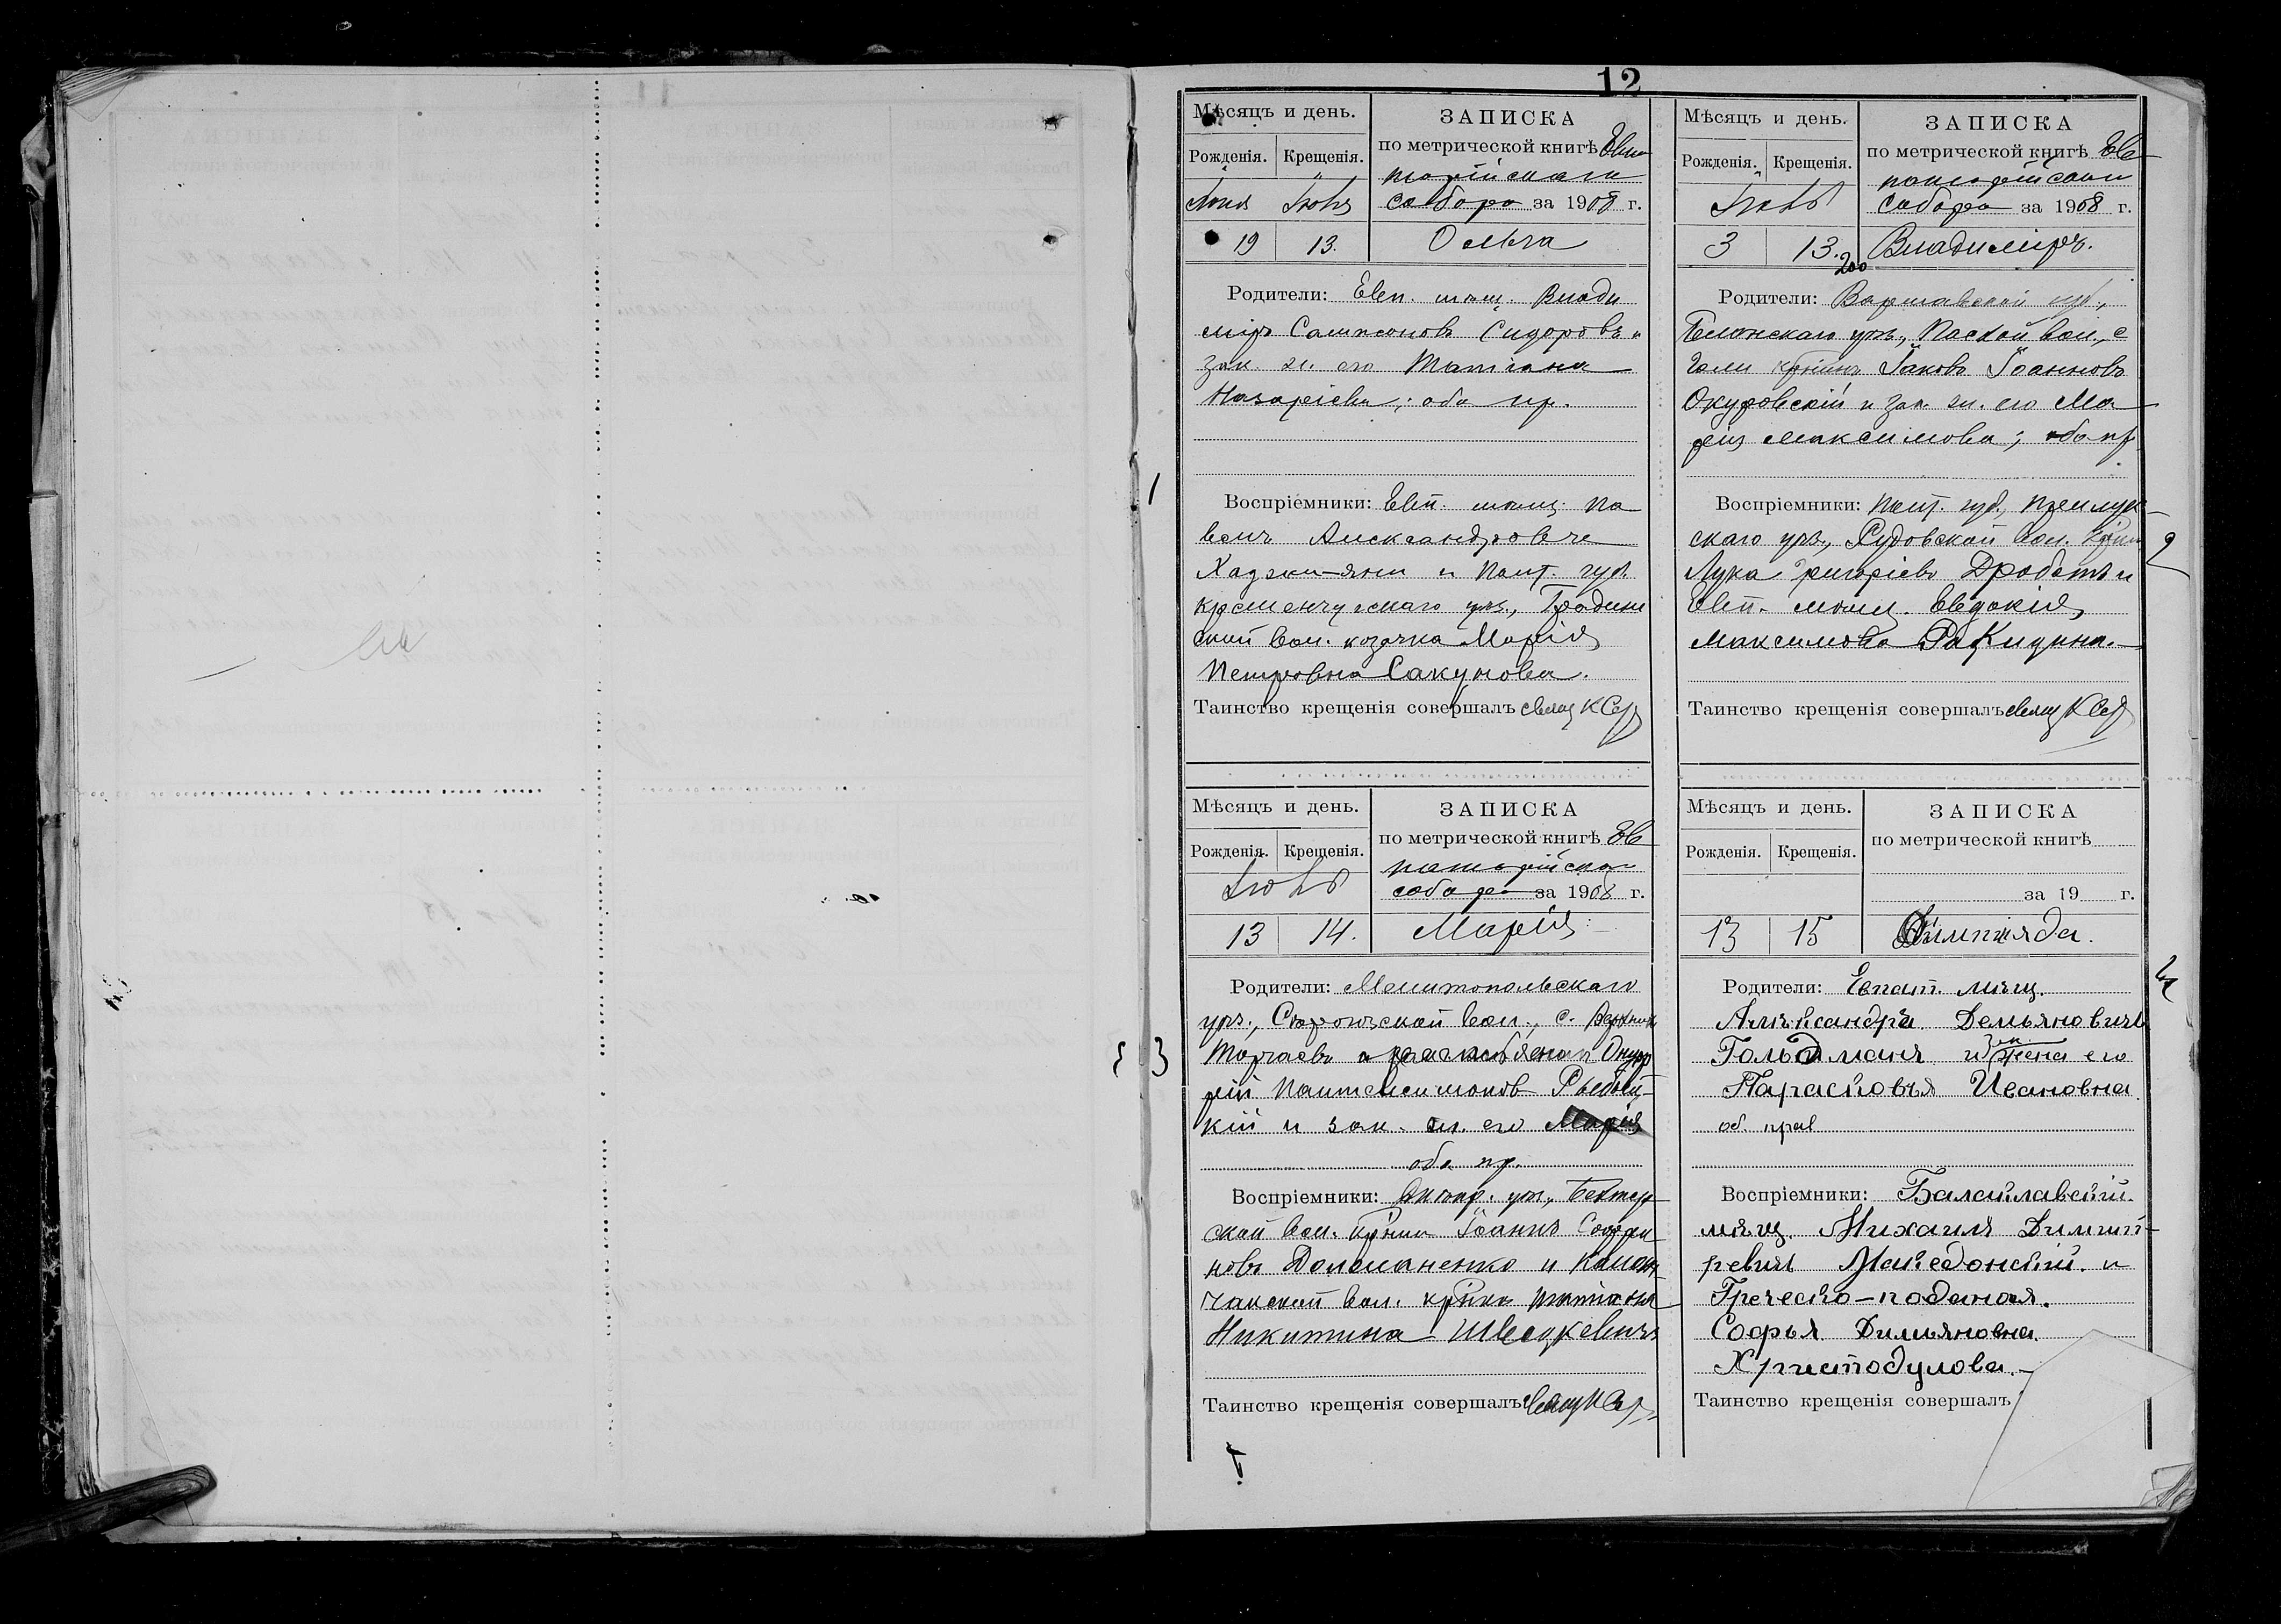 12
Мѣсяцъ и день.
Рожденія. Крещенія.
ЗАПИСКА
по метрической книгѣ Евпа
торійскаго
собора за 1908 г.
Іюня Іюля
19 13. Ольга
Родители: Евп. мѣщ. Влади
міръ Сампсоновъ Сидоровъ и
зак. ж. его Татіана
Назаріева; оба пр.
Воспріемники: Евп. мѣщ. Па
велъ Александровъ
Хаджи-яни и Полт. губ.
Кременчугскаго уѣз., Градиж
ской вол. козачка Марія
Петровна Сакунова.
Таинство крещенія совершалъ свящ К Сер
1
Мѣсяцъ и день.
Рожденія. Крещенія.
ЗАПИСКА
по метрической книгѣ Ев
паторійскаго
собора за 1908 г.
Іюль
3 13. Владиміръ.
200
Родители: Варшавской губ.,
Блонскаго уѣз., Паской вол., с
крѣинъ Іаковъ Іоанновъ
Окуровскій и зак. ж. его Ма
рія Максимова; оба пр
Воспріемники: Полт. губ, Прилук
скаго уѣз., Рудовской вол. крѣин
Лука Григоріевъ Дроботъ и
Евп. мѣщ. Евдокія
Максимова Ракидина.
Таинство крещенія совершалъ свящ К Сер
2
Мѣсяцъ и день.
Рожденія. Крещенія.
ЗАПИСКА
по метрической книгѣ Ев
паторійска
собора за 1908 г.
Іюль
13 14. Марія
Родители: Мелитопольскаго
уѣз., вол., с. Верхнихъ
Торгаевъ Онуф
рій Пантелеимоновъ Рыбиц-
кій и зак. ж. его Марія
оба пр.
Воспріемники: Днѣпр. уѣз., Бехтер
ской вол. крѣинъ Іоаннъ Софро
новъ Долманенко и Калан
чакской вол. крѣнка Татіана
Никитина
Таинство крещенія совершалъ свящ К Сер
3
Мѣсяцъ и день.
Рожденія. Крещенія.
ЗАПИСКА
по метрической книгѣ
за 19 г.
13 15 Олимпіяда.
Родители: Евпат. мѣщ.
Александръ Демьяновичъ
Гольдманъ и зак жена его
Парасковья Ивановна
об. прав
Воспріемники: Балаклавскій
мѣщ. Михаилъ Димит-
ревичъ Македонскій. и
Греческо-поданая.
Софья Димьяновна.
Христодулова.-
Таинство крещенія совершалъ
4